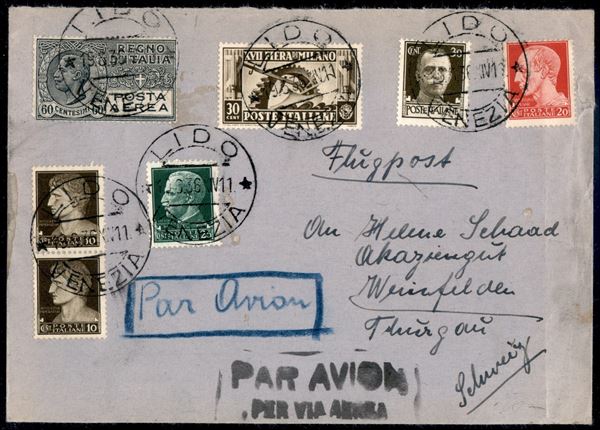 LIDO
VENEZIA
REGNO
D'ITALIA
60 CENTESIMI
POSTA
AEREA
LIDO
VENEZIA
XVII FIERA MILANO
30
CENT
POSTE ITALIANE
LIDO
VENEZIA
CENT. 30
POSTE ITALIANE
20
LIDO
VENEZIA
10
POSTE
ITALIANE
10
LIDO
36 XIV 11
VENEZIA
25
Flugpost
An Helene Schaad
Akaziengut
Weinfelden
Thurgau
Schweiz
Par Avion
PAR AVION
PER VIA AEREA